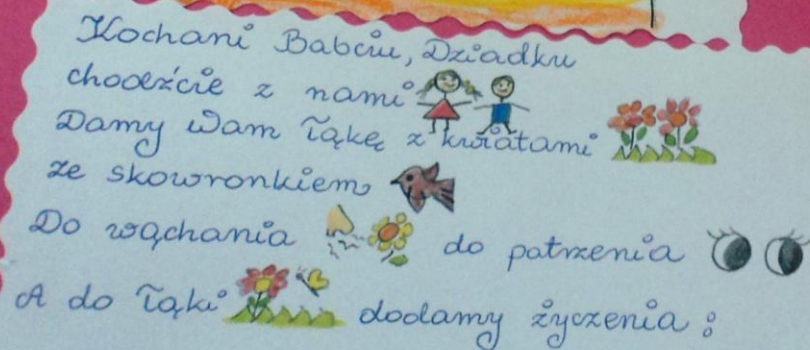 Kochani Babciu, Dziadku
chodźcie z nami
Damy Wam łąkę z kwiatami
ze skowronkiem
Do wąchania do patrzenia
A do łąki dodamy życzenia :